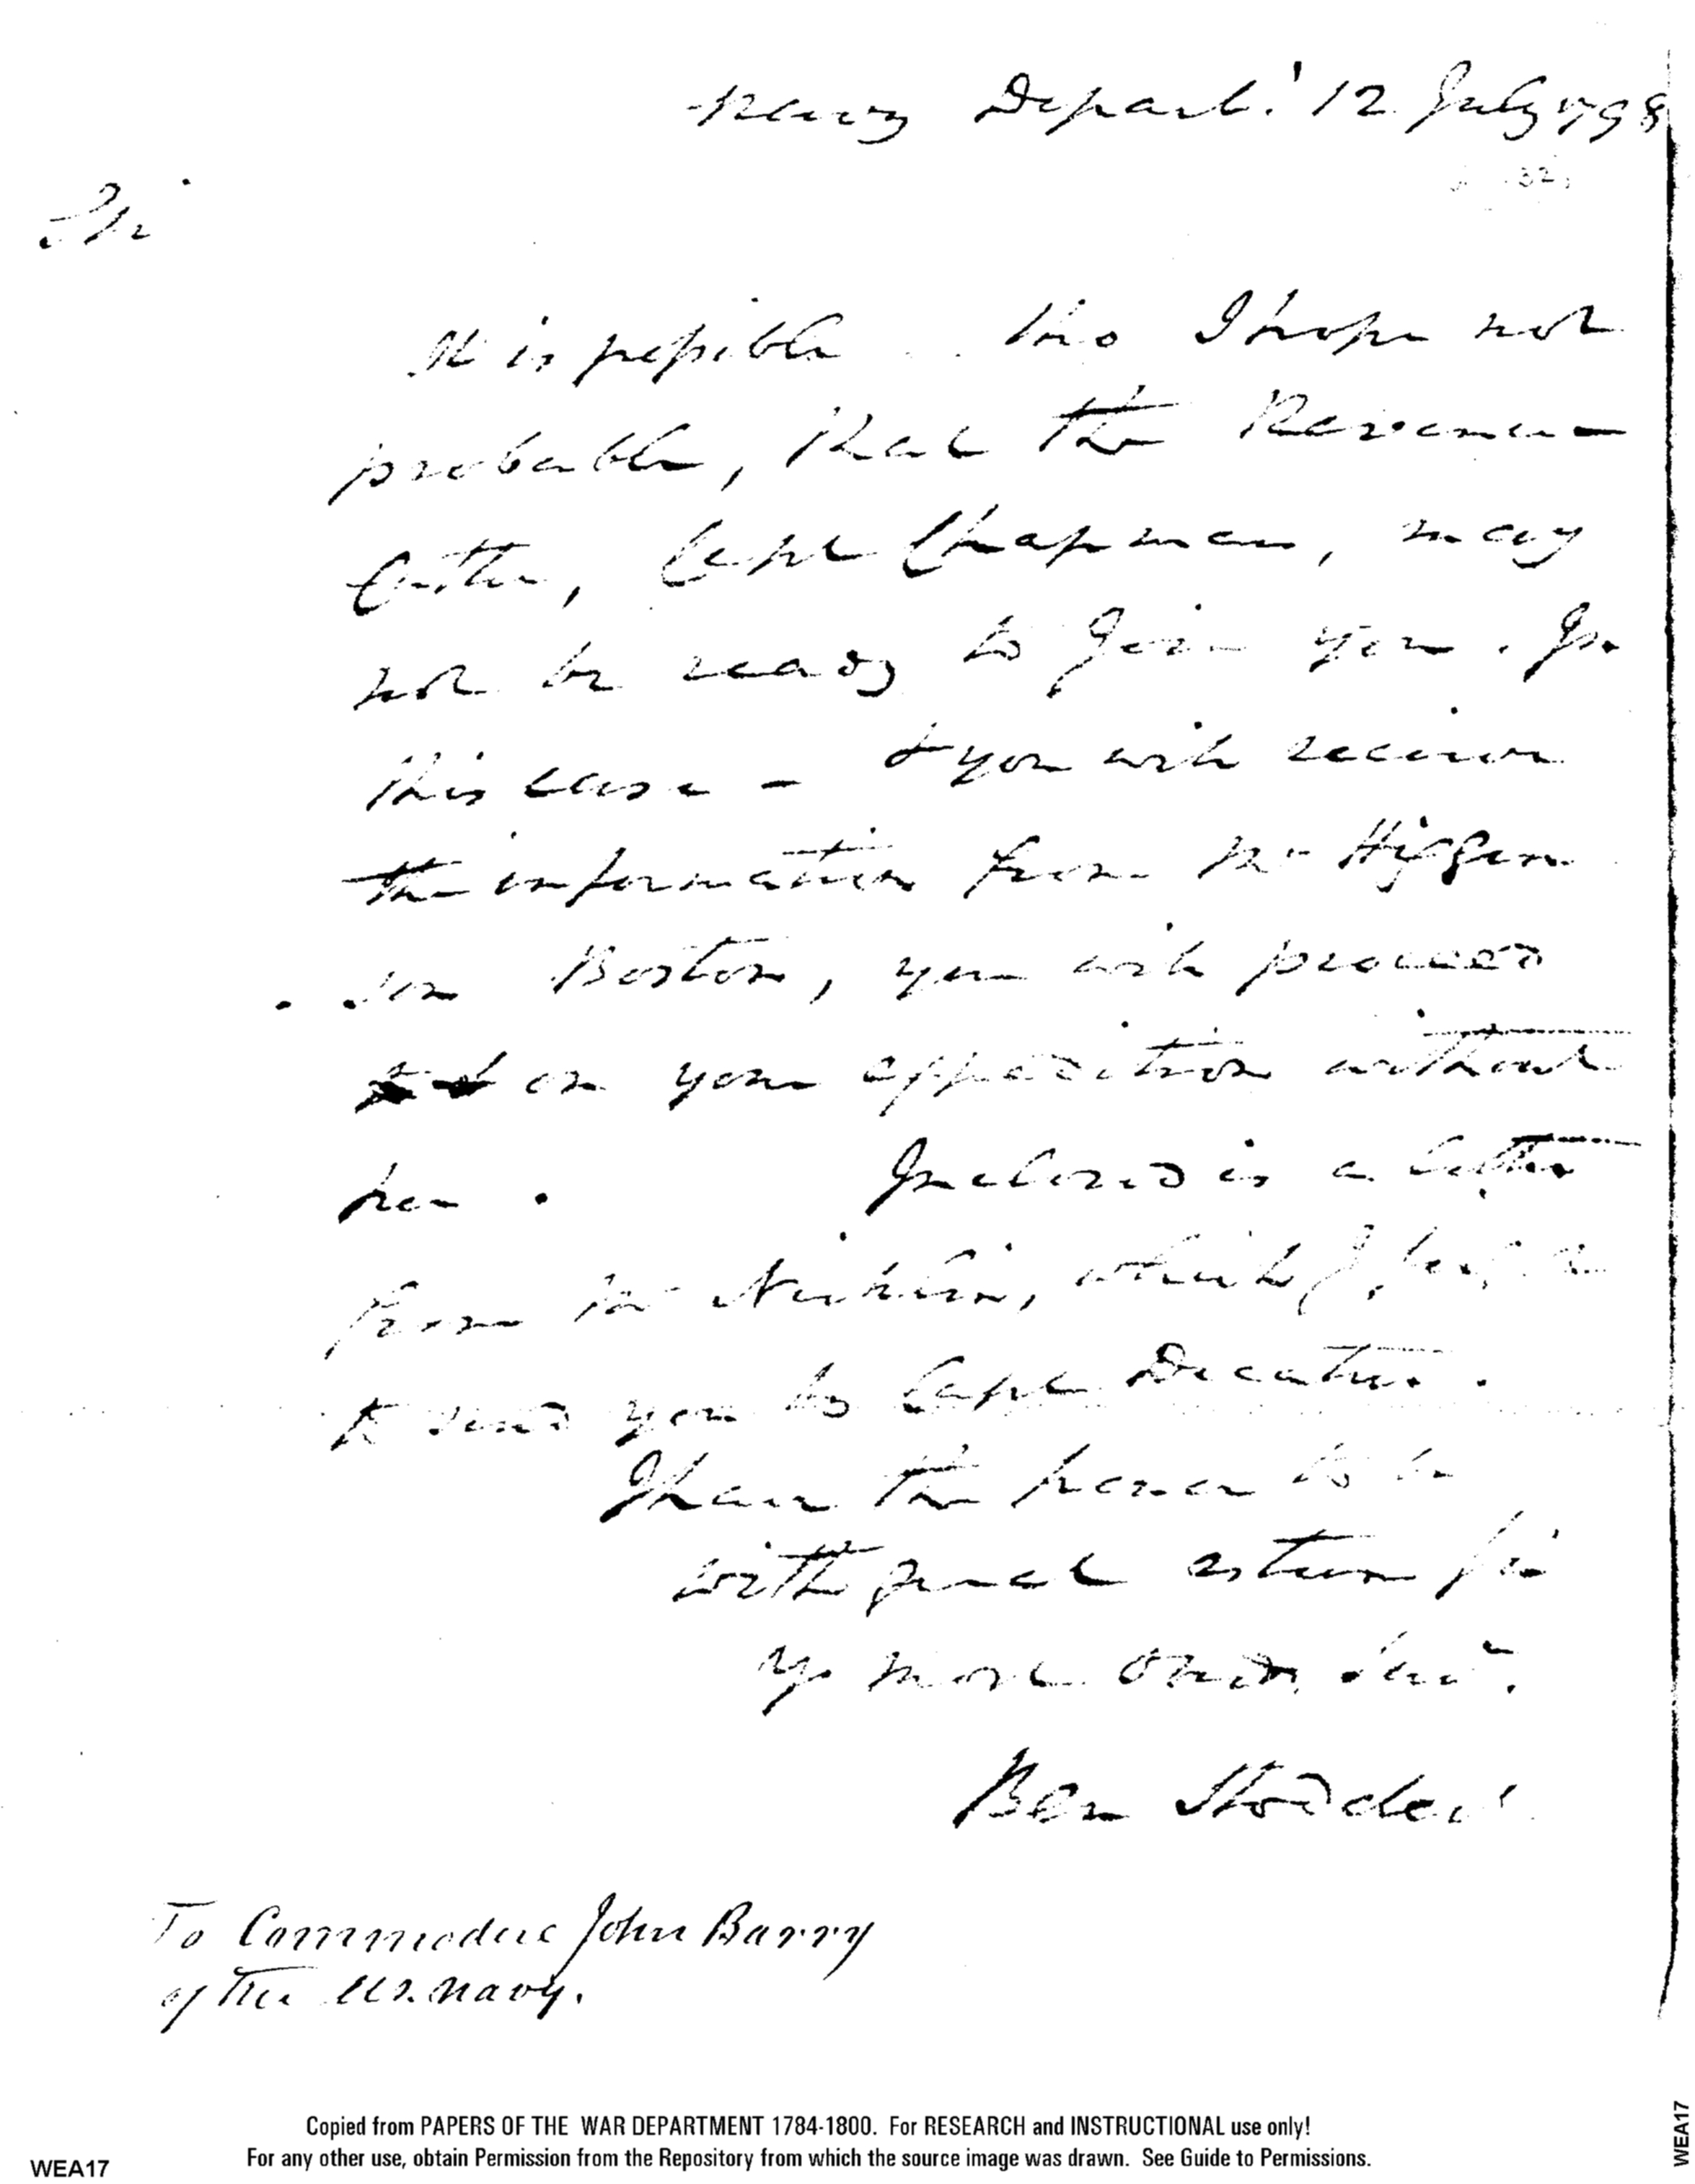 Navy Depart.t 12 July 1798
Sir
It is possible tho I hope not
probable, that the Revenue
Cutter, Capt Chapman, may
not be ready to join you. In
this case – & you will receive
the information from Mr Higgin
son Boston, you will proceed
on your expedition without
her. Inclosed is a letter
from Mr Nicklin, which I
to send you by Capt Decatur.
I have the honor to be
with great esteem Sir
Yr most Obed. Servt.
Ben Stoddert
To Commodore John Barry
of the U.S. Navy.
Copied from PAPERS OF THE WAR DEPARTMENT 1784-1800. For RESEARCH and INSTRUCTIONAL use only!
For any other use, obtain Permission from the Repository from which the source image was drawn. See Guide to Permissions.
WEA17
WEA17